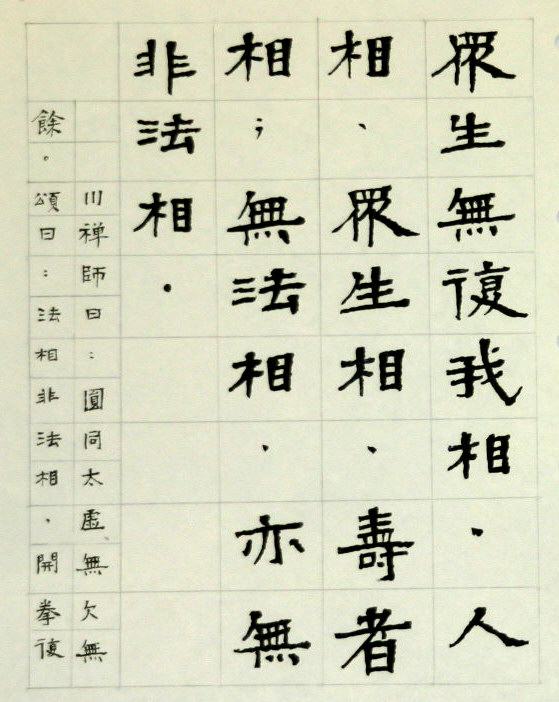 眾生無復我相、人
相、眾生相、壽者
相；無法相、亦無
非法相。
川禪師曰：圓同太虛無欠無
餘。頌曰：法相非法相，開拳復